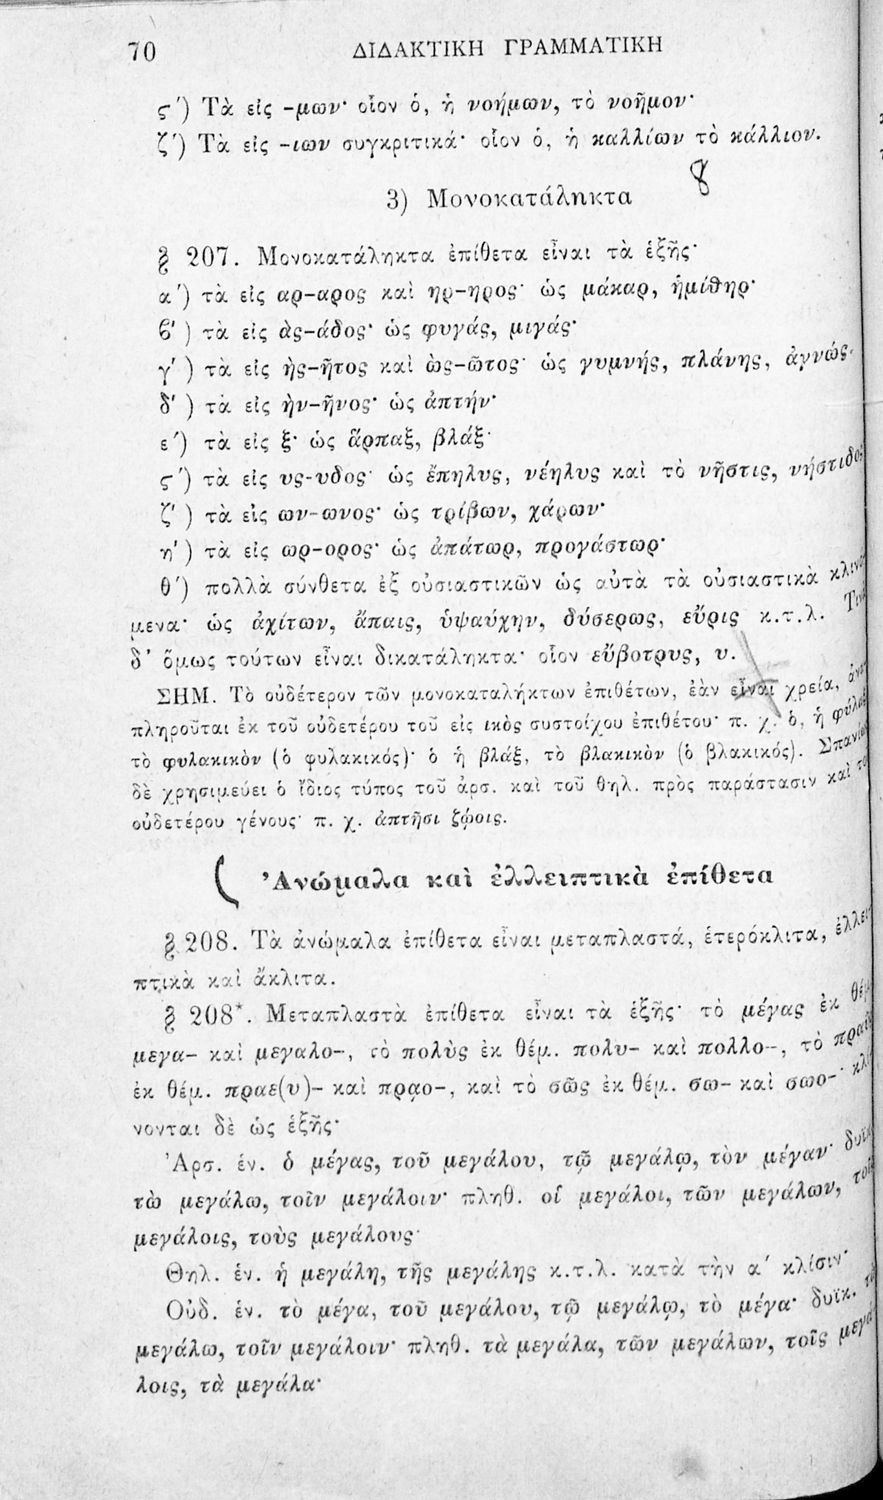 70 ΔΙΔΑΚΤΙΚΗ ΓΡΑΜΜΑΤΙΚΗ
ϛ´) Τὰ εἰς -μων· οἷον ὁ, ἡ νοήμων, τὸ νοῆμον·
ζ´) Τὰ εἰς -ιων συγκριτικά· οἷον ὁ, ἡ καλλίων τὸ κάλλιον.
3) Μονοκατάληκτα
§ 207. Μονοκατάληκτα ἐπίθετα εἶναι τὰ ἑξῆς·
α´) τὰ εἰς αρ-αρος καὶ ηρ-ηρος· ὡς μάκαρ, ἡμίθηρ·
β´) τὰ εἰς ὰς-άδος· ὡς φυγάς, μιγάς·
γ´) τὰ εἰς ὴς-ῆτος καὶ ὼς-ῶτος· ὡς γυμνής, πλάνης, ἀγνώς·
δ´) τὰ εἰς ὴν-ῆνος· ὡς ἀπτήν·
ε´) τὰ εἰς ξ· ὡς ἅρπαξ, βλάξ·
ϛ´) τὰ εἰς υς-υδος· ὡς ἔπηλυς, νέηλυς καὶ τὸ νῆστις, νήστιδος·
ζ´) τὰ εἰς ων-ωνος· ὡς τρίβων, χάρων·
η´) τὰ εἰς ωρ-ορος· ὡς ἀπάτωρ, προγάστωρ·
θ´) πολλὰ σύνθετα ἐξ οὐσιαστικῶν ὡς αὐτὰ τὰ οὐσιαστικὰ κλινό
μενα· ὡς ἀχίτων, ἄπαις, ὑψαύχην, δύσερως, εὖρις κ.τ.λ. Τινὰ
δ᾽ ὅμως τούτων εἶναι δικατάληκτα· οἷον εὔβοτρυς, υ.
ΣΗΜ. Τὸ οὐδέτερον τῶν μονοκαταλήκτων ἐπιθέτων, ἐὰν εἶναι χρεία, ἀνα
πληροῦται ἐκ τοῦ οὐδετέρου τοῦ εἰς ικὸς συστοίχου ἐπιθέτου· π. χ. ὁ, ἡ φύλαξ
τὸ φυλακικὸν (ὁ φυλακικός)· ὁ ἡ βλάξ, τὸ βλακικὸν (ὁ βλακικός). Σπανίως
δὲ χρησιμεύει ὁ ἴδιος τύπος τοῦ ἀρσ. καὶ τοῦ θηλ. πρὸς παράστασιν καὶ τοῦ
οὐδετέρου γένους· π. χ. ἀπτῆσι ζῴοις.
Ἀνώμαλα καὶ ἐλλειπτικὰ ἐπίθετα
§ 208. Τὰ ἀνώμαλα ἐπίθετα εἶναι μεταπλαστά, ἑτερόκλιτα, ἐλλει
πτικὰ καὶ ἄκλιτα.
§ 208*. Μεταπλαστὰ ἐπίθετα εἶναι τὰ ἑξῆς· τὸ μέγας ἐκ θέμ.
μεγα- καὶ μεγαλο-, τὸ πολὺς ἐκ θέμ. πολυ- καὶ πολλο-, τὸ πραῢς
ἐκ θέμ. πραε(υ)- καὶ πρᾳο-, καὶ τὸ σῶς ἐκ θέμ. σω- καὶ σωο-· κλί
νονται δὲ ὡς ἑξῆς·
Ἀρσ. ἑν. ὁ μέγας, τοῦ μεγάλου, τῷ μεγάλῳ, τὸν μέγαν· δυϊκ.
τὼ μεγάλω, τοῖν μεγάλοιν· πληθ. οἱ μεγάλοι, τῶν μεγάλων, τοῖς
μεγάλοις, τοὺς μεγάλους·
Θηλ. ἑν. ἡ μεγάλη, τῆς μεγάλης κ.τ.λ. κατὰ τὴν α´ κλίσιν·
Οὐδ. ἑν. τὸ μέγα, τοῦ μεγάλου, τῷ μεγάλῳ, τὸ μέγα· δυϊκ. τὼ
μεγάλω, τοῖν μεγάλοιν· πληθ. τὰ μεγάλα, τῶν μεγάλων, τοῖς μεγά
λοις, τὰ μεγάλα·